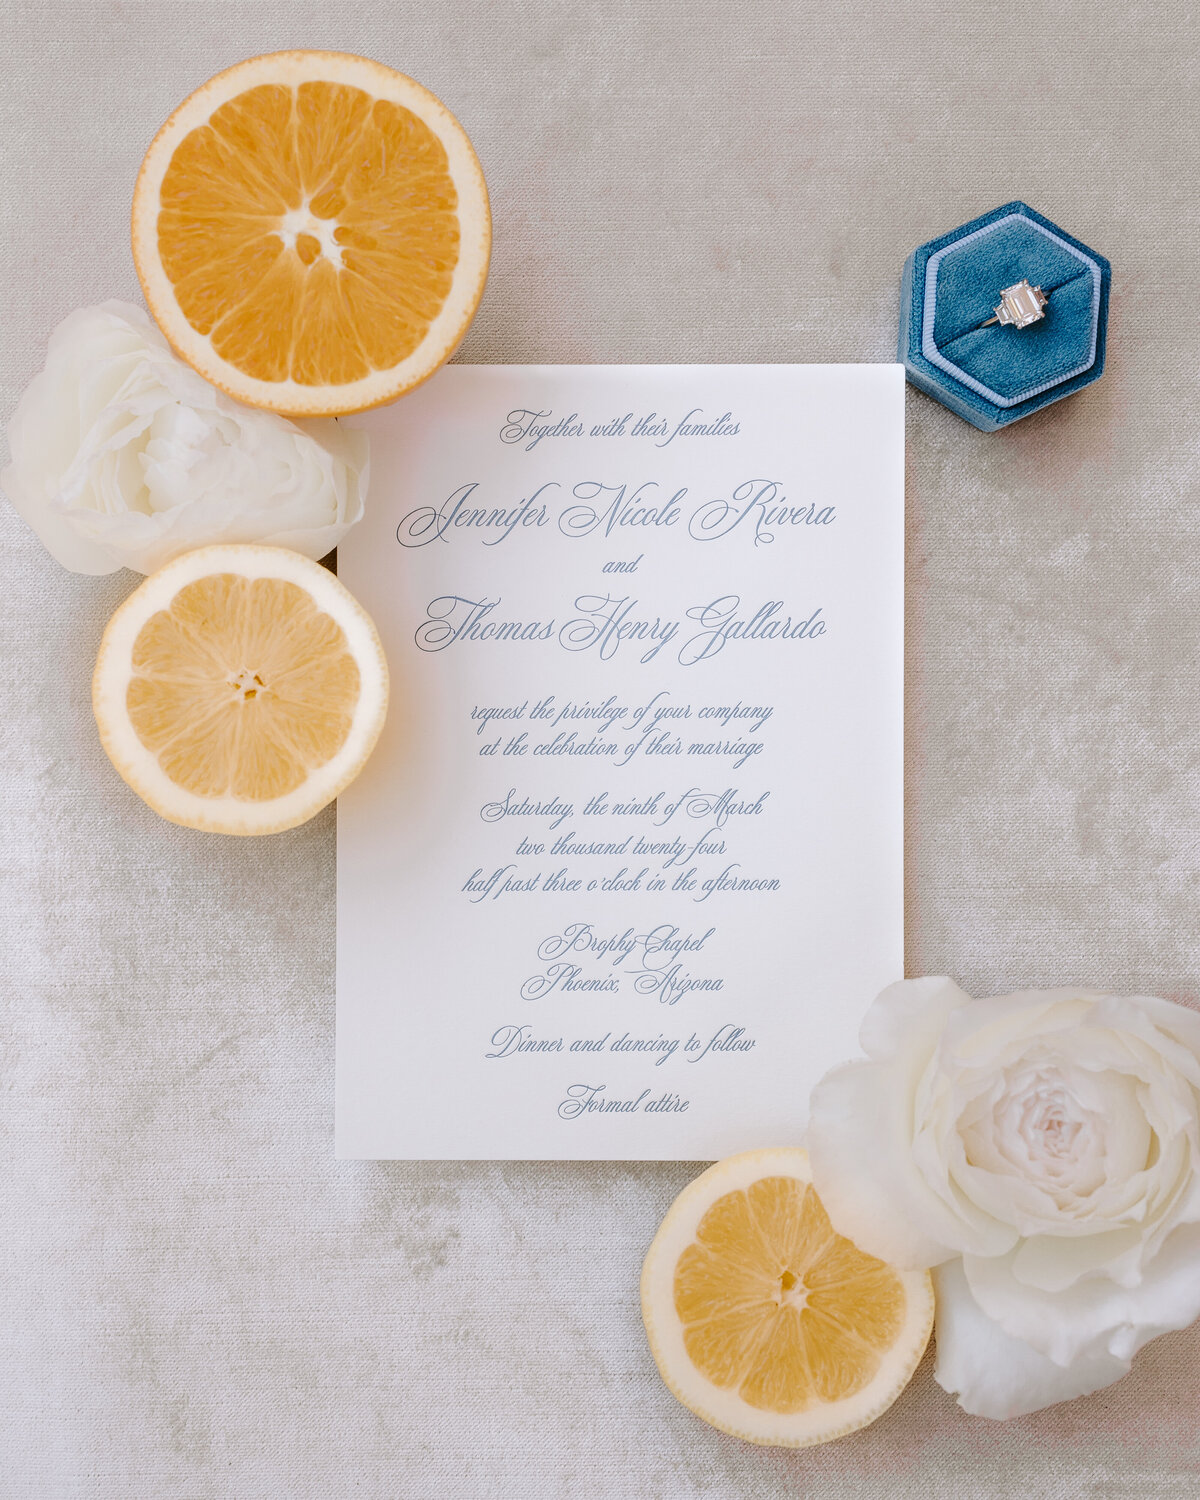 Together with their families
Jennifer Nicole Rivera
and
Thomas Henry Gallardo
request the privilege of your company
at the celebration of their marriage
Saturday, the ninth of March
two thousand twenty-four
half past three o'clock in the afternoon
Brophy Chapel
Phoenix, Arizona
Dinner and dancing to follow
Formal attire